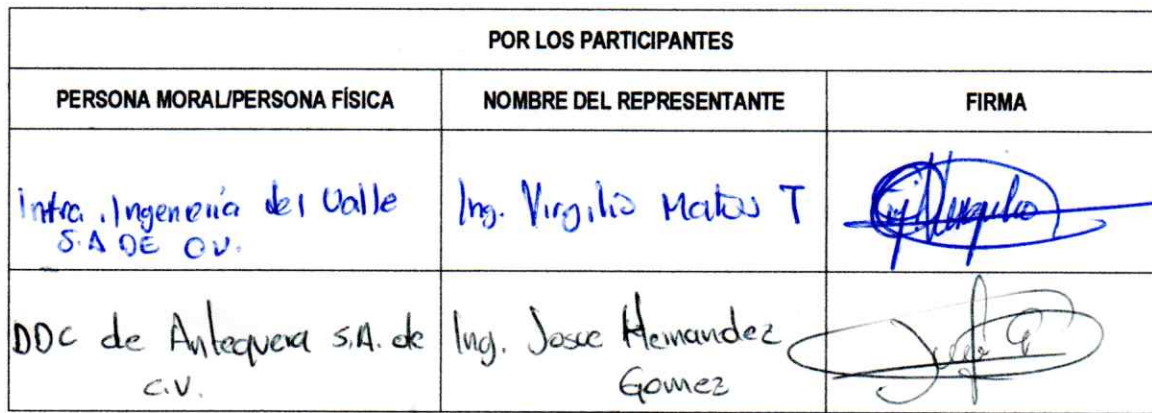 POR LOS PARTICIPANTES
PERSONA MORAL/PERSONA FÍSICA NOMBRE DEL REPRESENTANTE FIRMA
Infra.Ingeneria del Valle Ing. Virgilio Matus T
S.A DE CV.
DDC de Antequera S.A. de Ing. Josue Hernandez
C.V. Gomez